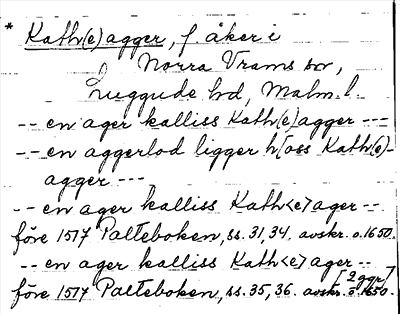 * Kath(e)agger, f. åker i
Norra Vrams sn,
Luggude hd, Malm. l.
-- en ager kalliss Kath(e)agger ---
-- en aggerlod ligger h/oss Kath(e)-
agger ---
-- en ager kalliss Kath<e>ager --
före 1517 Palteboken, ss. 31, 34. avskr. o. 1650.
-- en ager kalliss Kath<e>ager --
[2 ggr]
före 1517 Palteboken, ss. 35, 36. avskr. o. 1650.